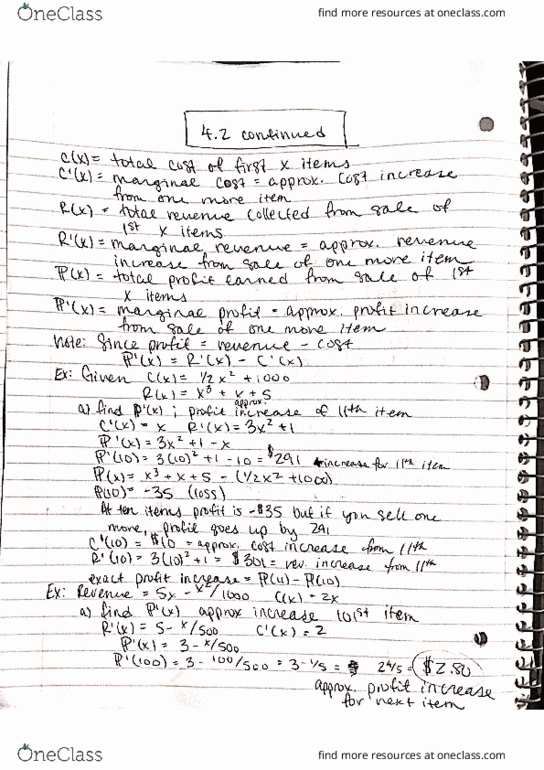 OneClass
find more resources at oneclass.com
4.2 continued
C(x) = total cost of first x items
C'(x) = marginal cost = approx. cost increase
from one more item
R(x) = total revenue collected from sale of
1st x items
R'(x) = marginal revenue = approx. revenue
increase from sale of one more item
P(x) = total profit earned from sale of 1st
x items
P'(x) = marginal profit = approx. profit increase
from sale of one more item
Note: Since profit = revenue - cost
P'(x) = R'(x) - C'(x)
Ex: Given C(x) = 1/2 x² + 1000
R(x) = x³ + x + 5
approx.
a) find P'(x) ; profit increase of 11th item
C'(x) = x R'(x) = 3x² + 1
P'(x) = 3x² + 1 - x
P'(10) = 3(10)² + 1 - 10 = $291 ← increase for 11th item
P(x) = x³ + x + 5 - (1/2x² + 1000)
P(10) = -35 (loss)
At ten items profit is -$35 but if you sell one
more, profit goes up by 291
C'(10) = $10 = approx. cost increase from 11th
R'(10) = 3(10)² + 1 = $301 = rev. increase from 11th
exact profit increase = P(11) - P(10)
Ex: Revenue = 5x - x²/1000 C(x) = 2x
a) find P'(x) approx increase 101st item
R'(x) = 5 - x/500 C'(x) = 2
P'(x) = 3 - x/500
P'(100) = 3 - 100/500 = 3 - 1/5 = 2 4/5 = $2.80
approx. profit increase
for next item
OneClass
find more resources at oneclass.com